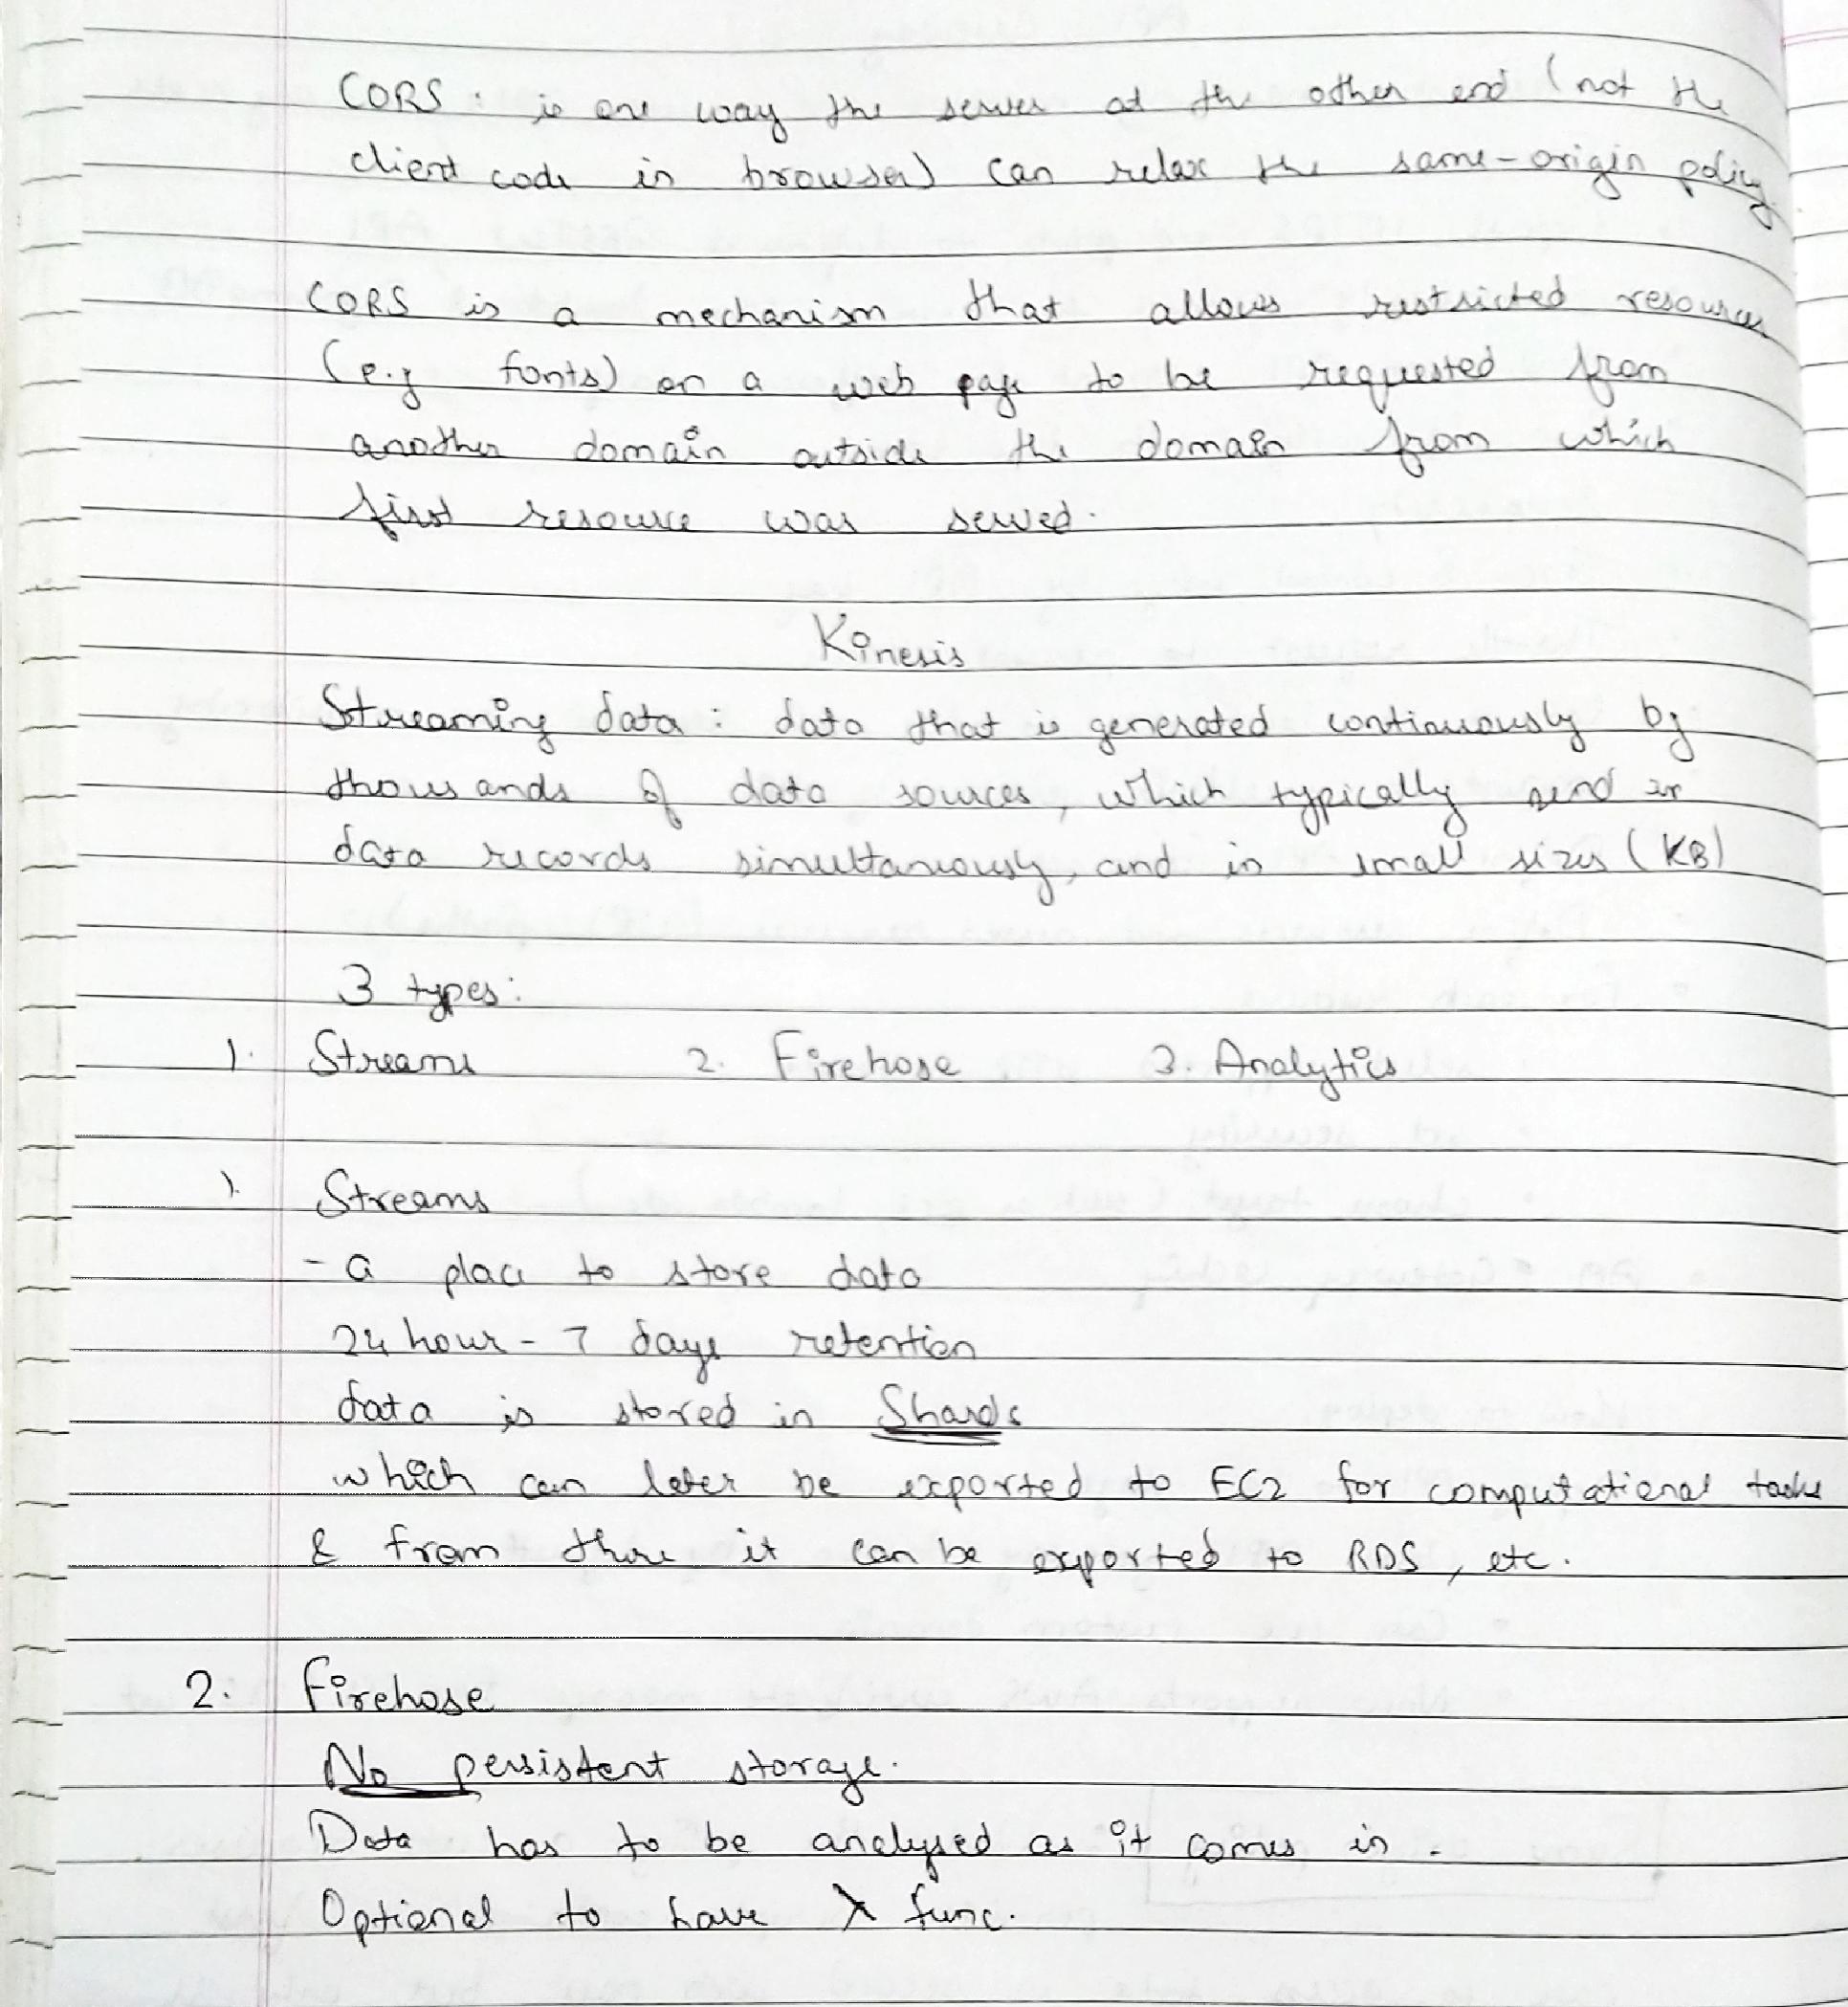 CORS : is one way the server at the other end (not the
client code in browser) can relax the same-origin policy.
CORS is a mechanism that allows restricted resources
(e.g fonts) on a web page to be requested from
another domain outside the domain from which
first resource was served.
Kinesis
Streaming data : data that is generated continuously by
thousands of data sources, which typically send in
data records simultaneously, and in small sizes (KB)
3 types:
1. Streams 2. Firehose 3. Analytics
1. Streams
- a place to store data
24 hour - 7 days retention
data is stored in Shards
which can later be exported to EC2 for computational tasks
& from there it can be exported to RDS, etc.
2. Firehose
No persistent storage.
Data has to be analysed as it comes in.
Optional to have λ func.